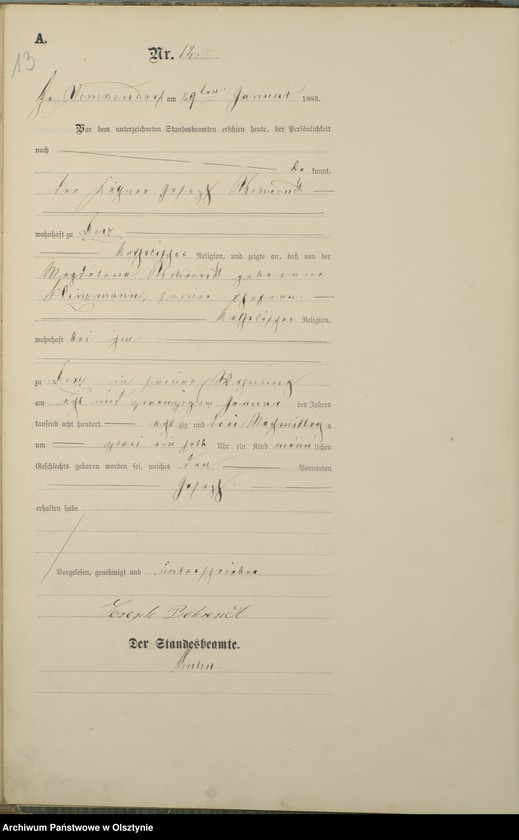 A.
13
Nr. 12.
Gr. am 29ten Januar 1883.
Vor dem unterzeichneten Standesbeamten erschien heute, der Persönlichkeit
nach
kannt,
der Joseph Behrendt
wohnhaft zu
katholischer Religion, und zeigte an, daß von der
Magdalena Behrendt geborene
seiner Ehefrau
katholischer Religion,
wohnhaft bei ihm
zu in seiner Wohnung
am acht und zwanzigsten Januar des Jahres
tausend acht hundert achtzig und drei Nachmittags
um zwei ein halb Uhr ein Kind männlichen
Geschlechts geboren worden sei, welches den Vornamen
Joseph
erhalten habe
Vorgelesen, genehmigt und unterschrieben
Joseph Behrendt
Der Standesbeamte.
Archiwum Państwowe w Olsztynie